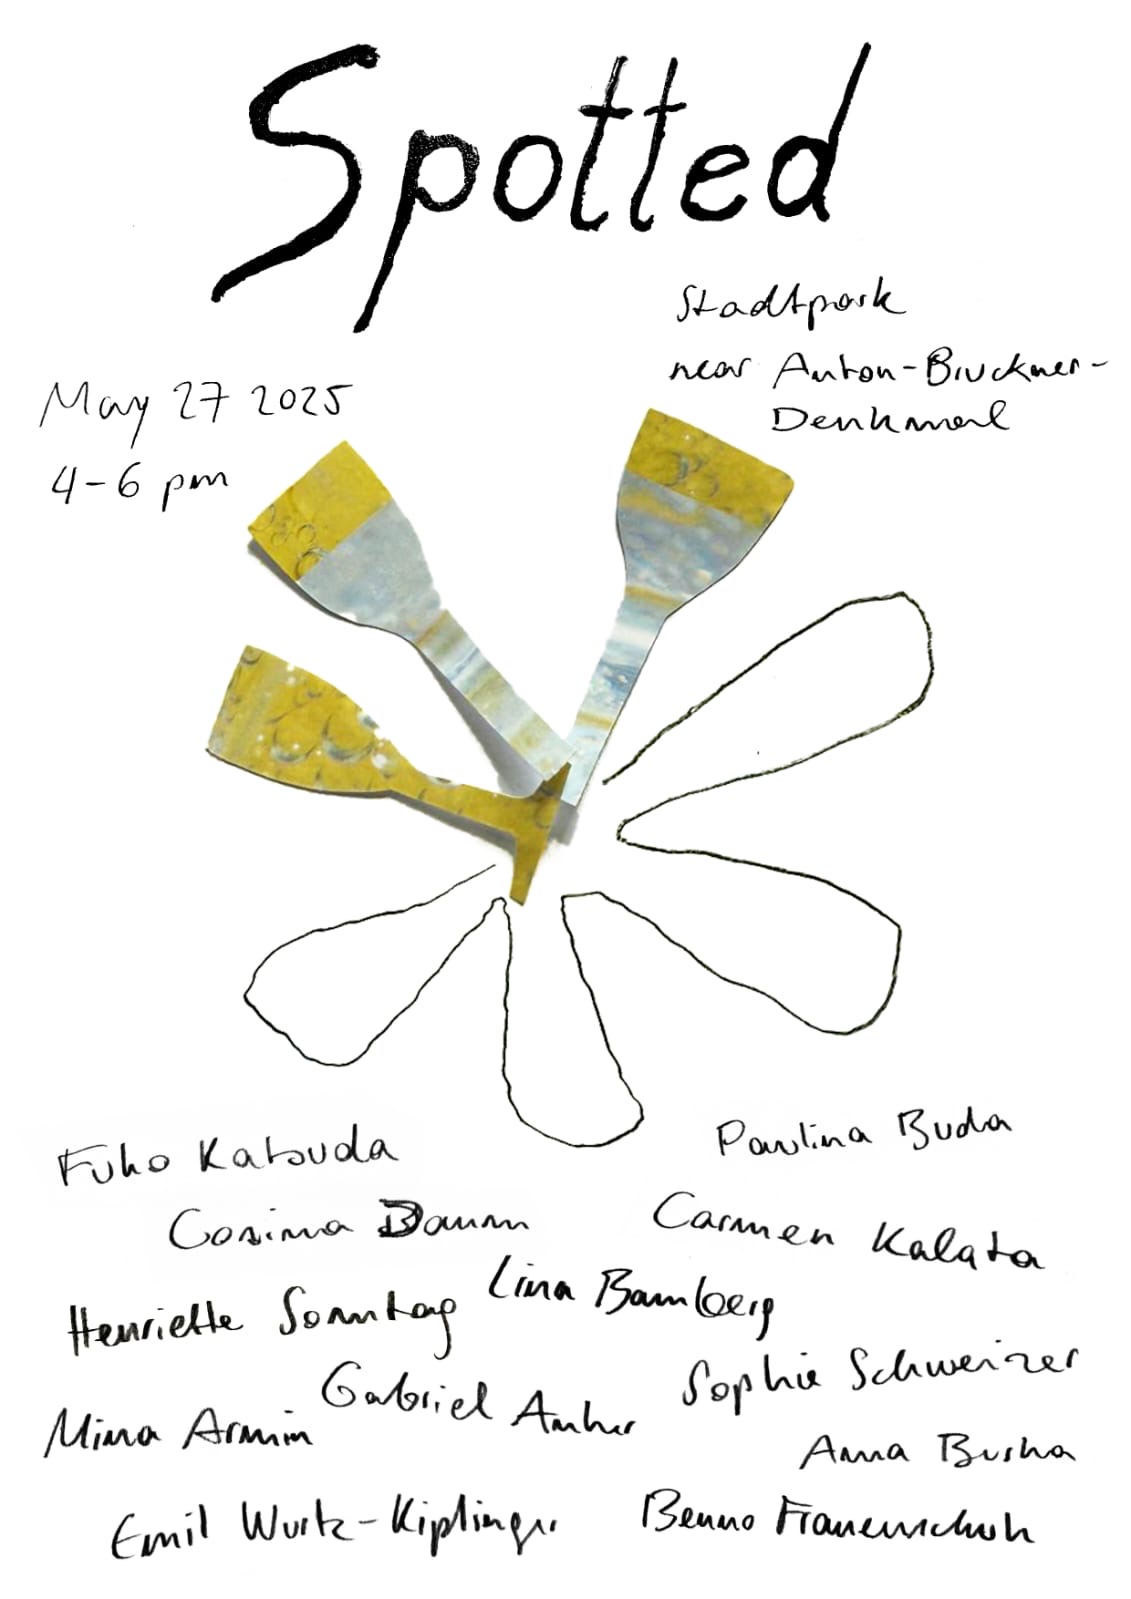 Spotted
Stadtpark
near Anton-Bruckner-
Denkmal
May 27 2025
4-6 pm
Fuko Katsuda
Paulina Buda
Cosima Baum
Carmen Kalata
Henriette Sonntag
Lina Bamberg
Gabriel
Sophie Schweizer
Mina Armin
Anna
Emil Wurtz-Kiplinger
Benno Frauenschuh